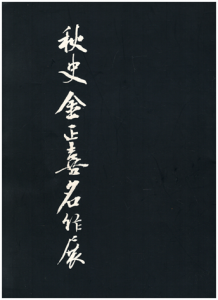 秋史金正喜名作展